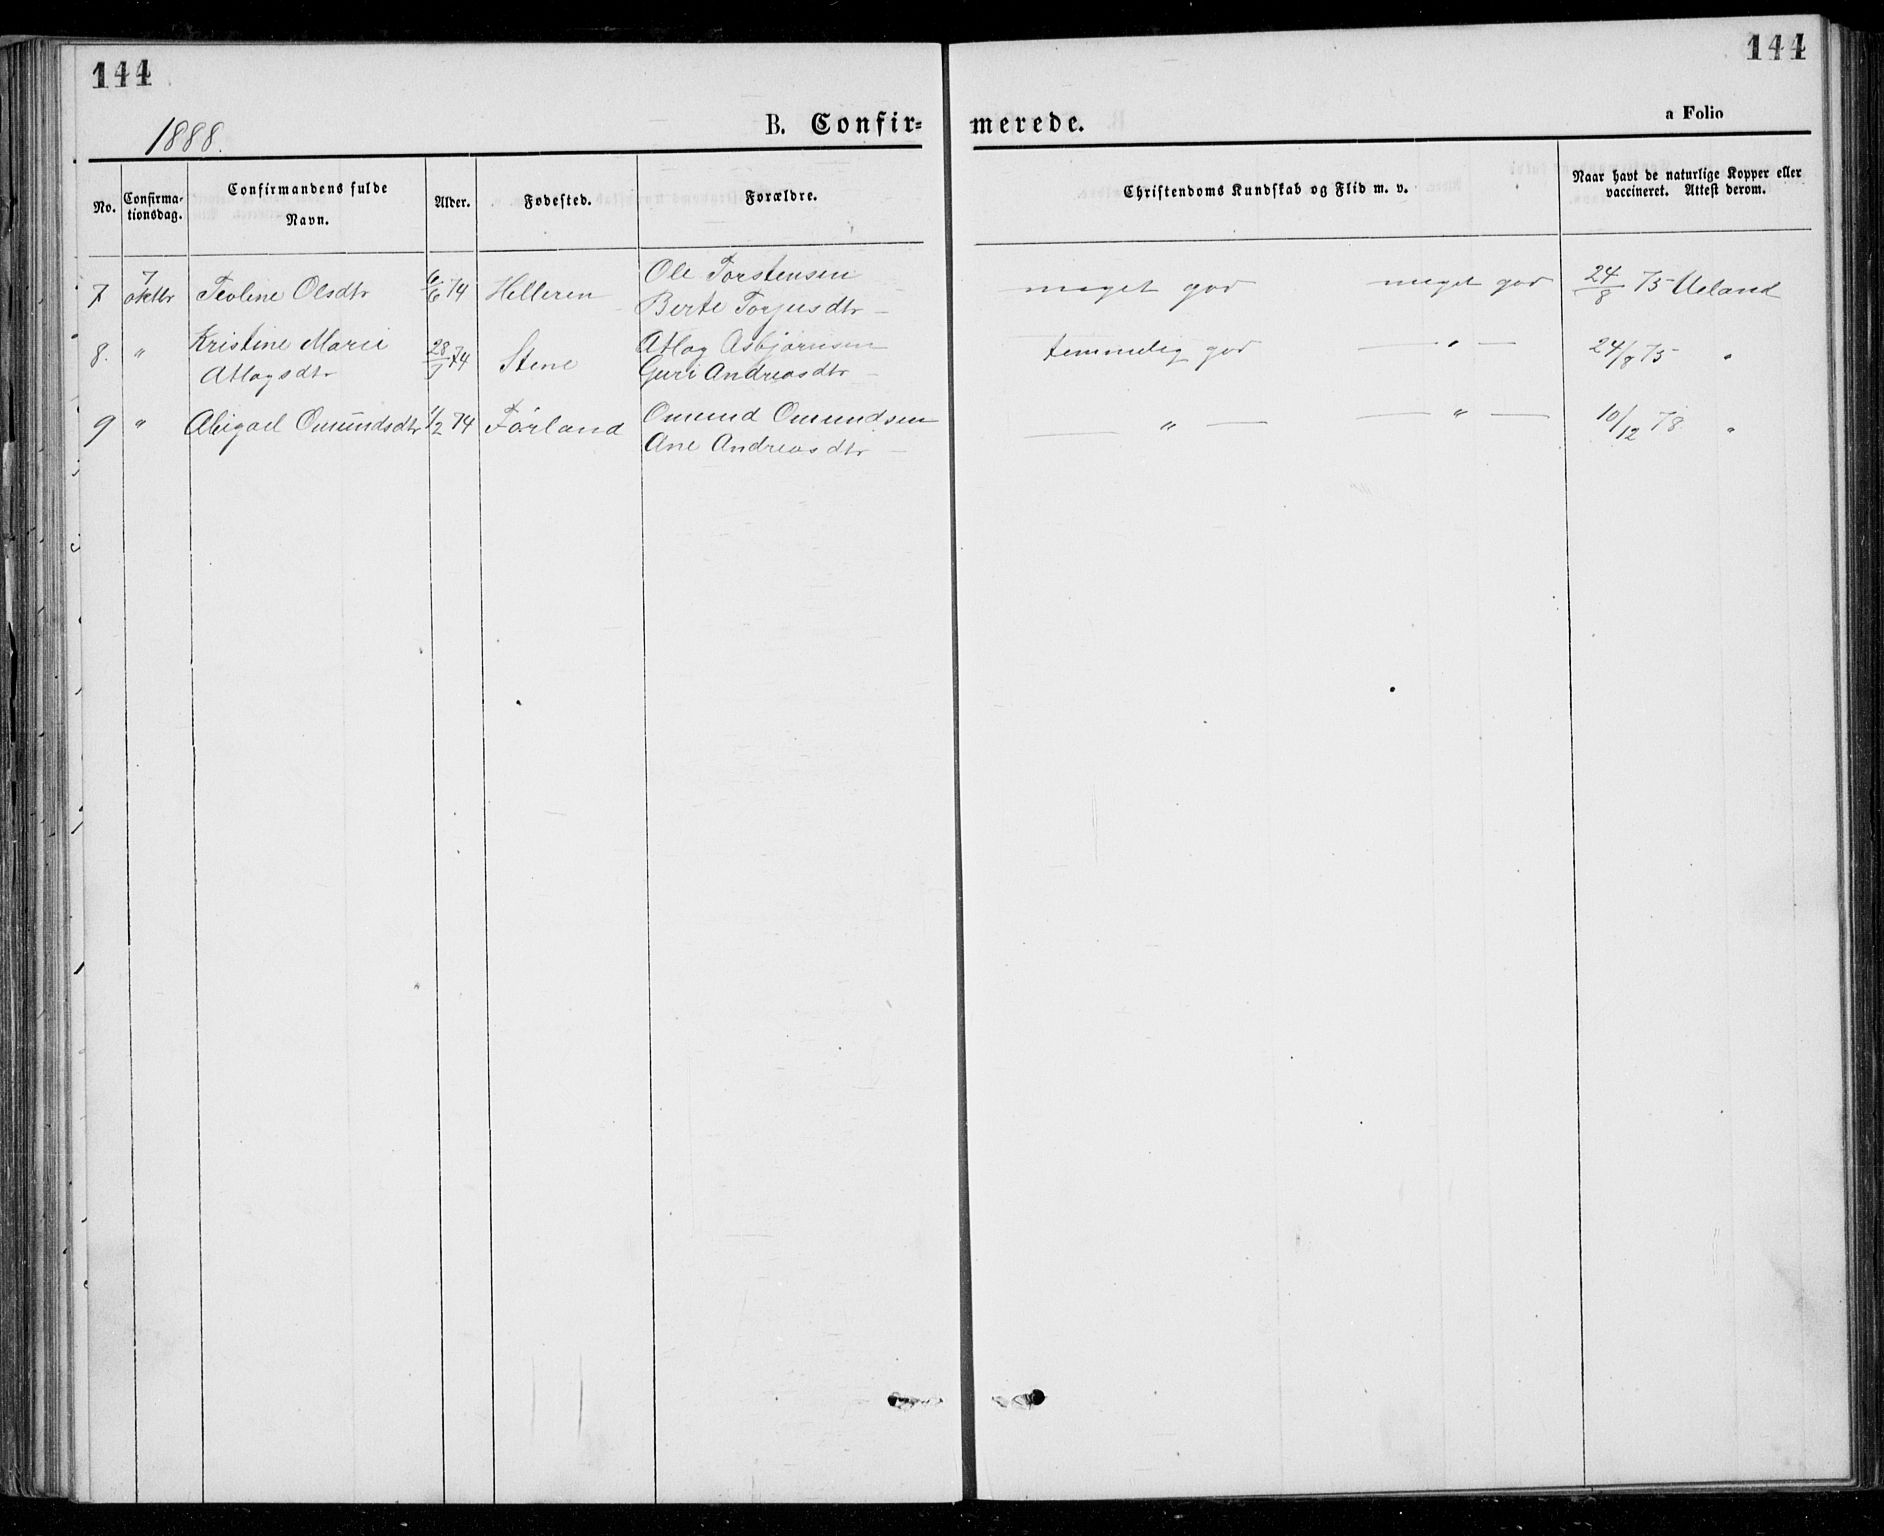 144
144
1888.
B. Confir-
merede.
a Folio
No.
Confirma-
tionsdag.
Confirmandens fulde
Navn.
Alder.
Fødested.
Forældre.
Christendoms Kundskab og Flid m. v.
Naar havt de naturlige Kopper eller
vaccineret. Attest derom.
7 7 oktbr Teoline Olsdtr 6/6 74 Helleren Ole Torstensen
Berte Torjusdtr – meget god meget god 24/8 75 Ueland
8. " Kristine Marie 28/ 74 Stene Atlag Asbjørnsen
Atlagsdtr Guri Andreasdtr – temmelig god — " — 24/8 75 "
9 " Abigael Omundsdtr 1/2 74 Førland Omund Omundsen
Ane Andreasdtr – — " — — " — 10/12 78. "